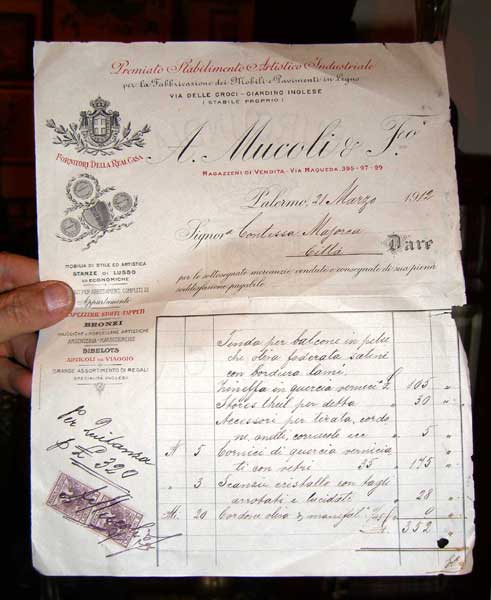 Premiato Stabilimento Artistico Industriale
per la Fabbricazione dei Mobili e Pavimenti in Legno
VIA DELLE CROCI - GIARDINO INGLESE
(STABILE PROPRIO)
A. Mucoli & Fo
FORNITORI DELLA REAL CASA
MAGAZZENI DI VENDITA - VIA MAQUEDA, 395-97-99
Palermo, 21 Marzo 1912
Signora Contessa Majorca
Città
Dare
per le sottosegnate mercanzie vendute e consegnate di sua piena
soddisfazione pagabili
MOBILIA DI STILE ED ARTISTICA
STANZE DI LUSSO
ED ECONOMICHE
Appartamente
TAPPEZZERIE STOFFE-TAPPETI
BRONZI
MAIOLICHE E PORCELLANE ARTISTICHE
BIBELOTS
ARTICOLI DA VIAGGIO
GRANDE ASSORTIMENTO DI REGALI
SPECIALITÀ INGLESI
Tenda per balcone in pelu
che oliva foderata satine
con bordura lami,
in quercia vernici £ 105 "
Stores per detta " 30 "
Accessori per tirata, cordo
ne, anelli, ecc " 5 "
N 5 Cornici di quercia vernicia
ti con vetri 35 " 175 "
" 3 cristallo con tagli
arrotati e lucidati " 28 "
Mt. 20 Cordone oliva
352 "
Per quitanza
£ 320